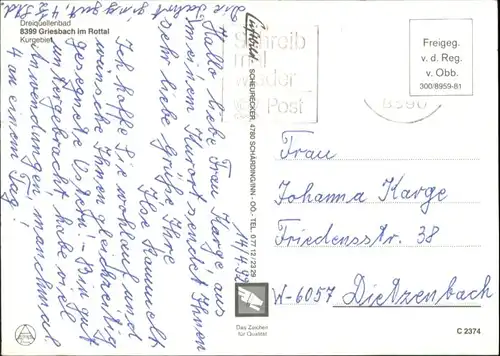 Dreiquellenbad
8399 Griesbach im Rottal
Kurgebiet
Schreib
mal
wieder
Post
8390
Freigeg.
v. d. Reg.
v. Obb.
300/8959-81
14/4.92
Hallo liebe Frau Karge aus
meinem Kurort sendet Ihnen
sehr liebe Grüße Ihre
Ilse Hammelt
Ich hoffe Sie wohlauf und
wünsche Ihnen gleichzeitig
gesegnete Ostern! - Bin gut
untergebracht, habe viel
Anwendungen, manchmal
4 an einem Tag!
die Fahrt ging gut, 4 ½ Std
Luftbild SCHEURECKER, 4780 SCHÄRDING/INN - OÖ - TEL. 0 77 12 / 23 29
Frau
Johanna Karge
Friedensstr. 38
W-6057 Dietzenbach
Das Zeichen
für Qualität
C 2374